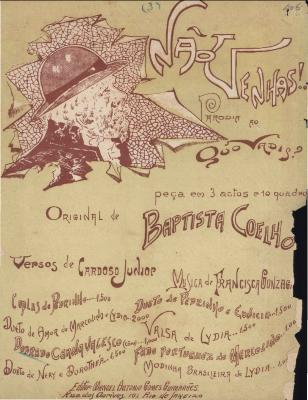 NÃO VENHAS!..
PARODIA AO
QUO VADIS?
peça em 3 actos e 10 quadro
ORIGINAL de BAPTISTA COELHO
Versos de CARDOSO JUNIOR
MUSICA de FRANCISCA GONZAGA
COPLAS do PEDRINHO 1.500
DUETO de PEDRINHO e
DUETO de AMOR de MARCOLINO e LYDIA 2000
VALSA de LYDIA 1.500
DOBRADO CARRAVALESCO
FADO PORTUGUEZ de MARCOLINO
DUETO de NERY e DOROTHEA 2.500
MODINHA BRASILEIRA de LYDIA
Editor MANOEL ANTONIO GOMES GUIMARÃES
Rua dos Ourives 101 RIO DE JANEIRO